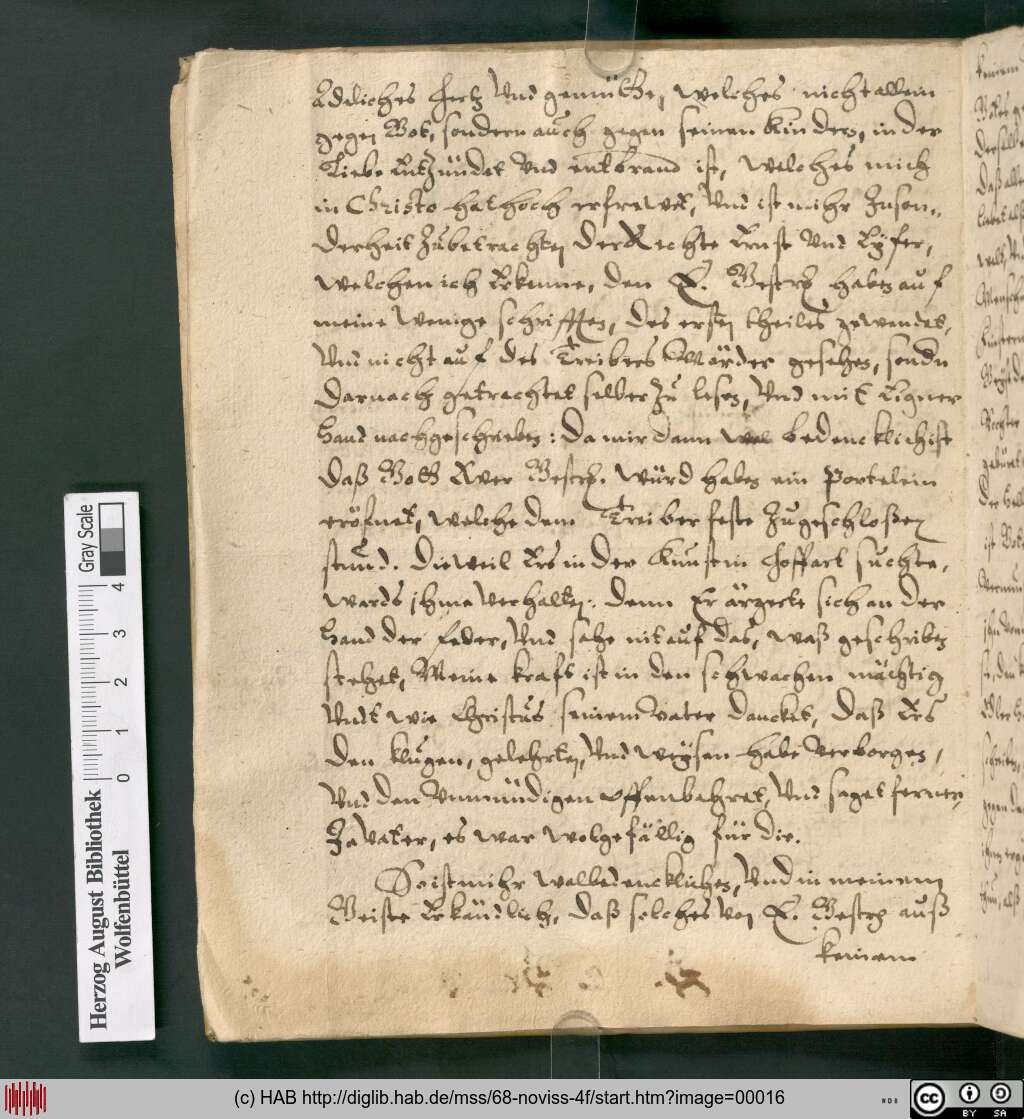 Adeliches Hertz Vnd gemüthe, welches nicht allein
gegen Got, sondern auch gegen seinen Kindern, in der
Liebe Entzündet Vnd entbrand ist, welches mich
in Christo hat hoch erfrewet, Vnd ist mihr Inson=
derheit Zubetrachten der Rechte Ernst Vnd Eyfer,
welchen ich Erkenne, den E. Gestr: haben auf
meine wenige schrifften, des ersten theiles gewendet,
Vnd nicht auf des Treibers Mörder gesehen, sondn
darnach getrachtet selber Zu lesen, Vnd mit Eigner
Hand nachgeschrieben: da mir dann wol bedencklich ist
daß Gott Ewer Gestr. würd haben ein Portelein
eröfnet, welche dem Treiber feste Zugeschloßen
stund. Dieweil Ers in der Kunst in Hoffart suchte,
wards ihme verhalten: denn Er ärgerte sich an der
Hand der feder, Vnd sahe nit auf das, waß geschriben
stehet, Meine kraft ist in den schwachen mächtig
Vndt wie Christus seinem Vater dancket, daß Ers
den klugen, gelehrten, Vnd weysen habe verborgen,
Vnd den Vnmündigen offenbahret, Vnd saget ferner:
Ja Vater, es war wolgefällig für dir.
So ist mihr wolbedencklichen, Vnd in meinem
Geiste Erkändlich, daß solches von E. Gestr: auß
keinem
Gray Scale
4
3
2
1
0
Herzog August Bibliothek
Wolfenbüttel
(c) HAB http://diglib.hab.de/mss/68-noviss-4f/start.htm?image=00016
cc BY SA